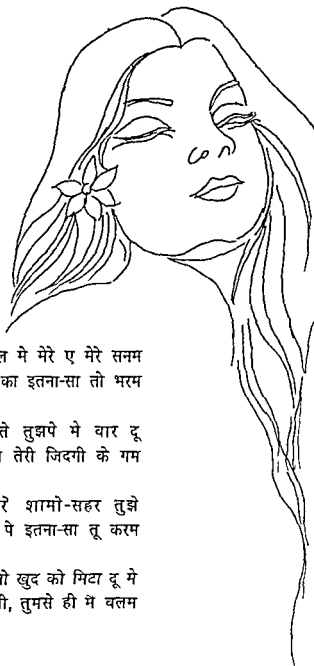 मे मेरे ए मेरे सनम
का इतना-सा तो भरम
तुझपे मे वार दू
तेरी जिदगी के गम
शामो-सहर तुझे
पे इतना-सा तू करम
खुद को मिटा दू मे
तुमसे ही में वलम